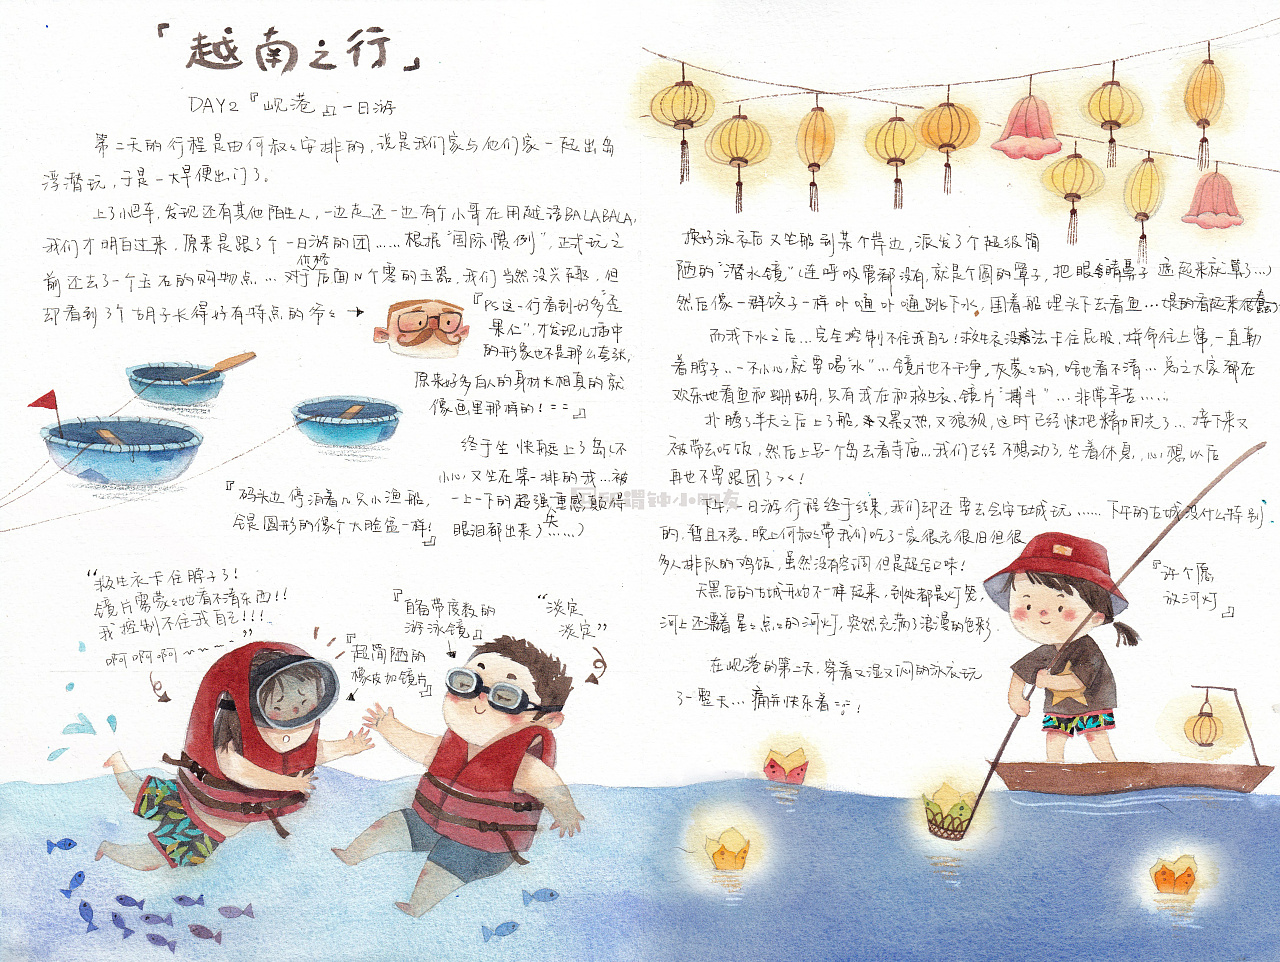 『越南之行』
DAY2『岘港』一日游
第二天的行程是由何叔叔安排的,说是我们家与他们家一起出岛
浮潜玩,于是一大早便出门了。
上了小巴车,发现还有其他陌生人,一边走还一边有个小哥在用越语BALABALA,
我们才明白过来,原来是跟了个一日游的团……根据"国际惯例",正式玩之
前还去了一个玉石的购物点…对于价格后面N个零的玉器,我们当然没兴趣,但
却看到了个胡子长得好有特点的爷爷
『PS这一行看到好多"歪
果仁",才发现儿插中
的形象也不是那么夸张,
原来好多白人的身材长相真的就
像画里那样的!==』
终于坐快艇上了岛(不
小心又坐在第一排的我…被
一上一下的超强失重感颠得
眼泪都出来了……)
『码头边停泊着几只小渔船,
都是圆形的像个大脸盆一样!』
"救生衣卡住脖子了!
镜片雾蒙蒙地看不清东西!!
我控制不住我自己!!!
啊啊啊~~~"
『自备带度数的
游泳镜』
『超简陋的
橡皮加镜片』
"淡定
淡定"
换好泳衣后又坐船到某个岸边,派发了个超级简
陋的"潜水镜"(连呼吸管都没有,就是个圆的罩子,把眼睛鼻子遮起来就算了…)
然后像一群饺子一样卟嗵卟嗵跳下水,围着船埋头下去看鱼…真的看起来很蠢)
而我下水之后…完全控制不住我自己!救生衣没法卡住屁股,拼命往上窜,一直勒
着脖子…一不小心,就要喝"水"…镜片也不干净,灰蒙蒙的,啥也看不清…总之大家都在
欢乐地看鱼和珊瑚,只有我在和救生衣、镜片"搏斗"…非常辛苦……
扑腾了半天之后上了船,又累又热,又狼狈,这时已经快把精力用光了…接下来又
被带去吃饭,然后上另一个岛去看寺庙…我们已经不想动了,坐着休息,心想以后
再也不要跟团了><!
下午一日游行程终于结束,我们却还要去会安古城玩……下午的古城没什么特别
的,暂且不表,晚上何叔叔带我们吃了一家很老很旧但很
多人排队的鸡饭,虽然没有空调但是超合口味!
天黑后的古城开始不一样起来,到处都是灯笼,
河上还漂着星星点点的河灯,突然充满了浪漫的色彩.
在岘港的第二天,穿着又湿又闷的泳衣玩
了一整天…痛并快乐着==!
『许个愿
放河灯』